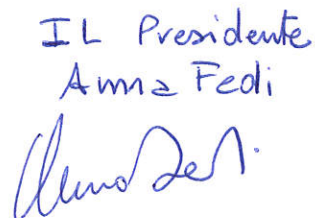 IL Presidente
Anna Fedi
Anna Fedi